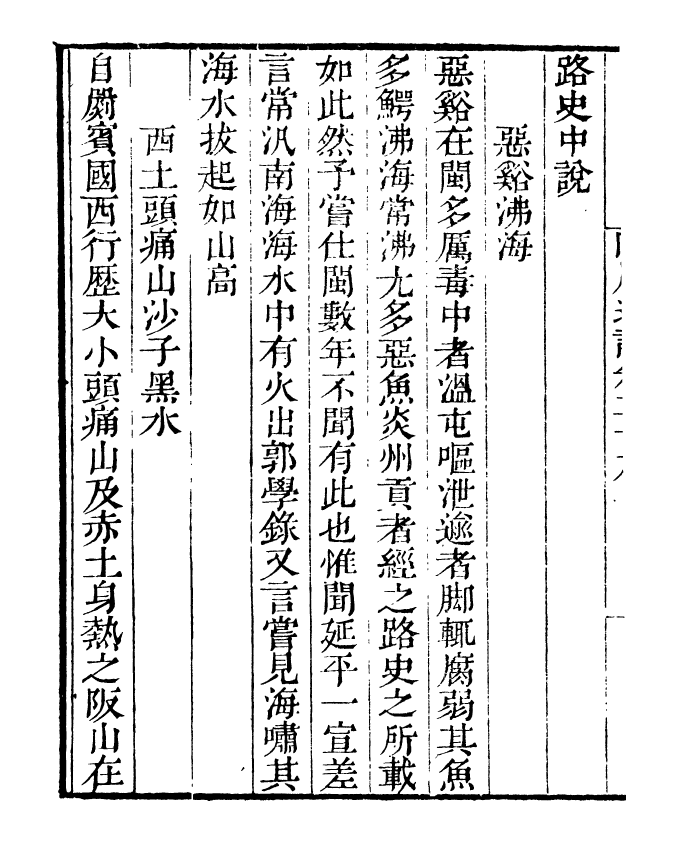 路史中說
惡谿沸海
惡谿在閩多厲毒中者溫屯嘔泄遊者脚輒腐弱其魚
多鰐沸海常沸尤多惡魚炎州貢者經之路史之所載
如此然予嘗仕閩數年不聞有此也惟聞延平一宣差
言常汎南海海水中有火出郭學錄又言嘗見海嘯其
海水拔起如山高
西土頭痛山沙子黑水
自罽賓國西行歷大小頭痛山及赤土身熱之阪山在